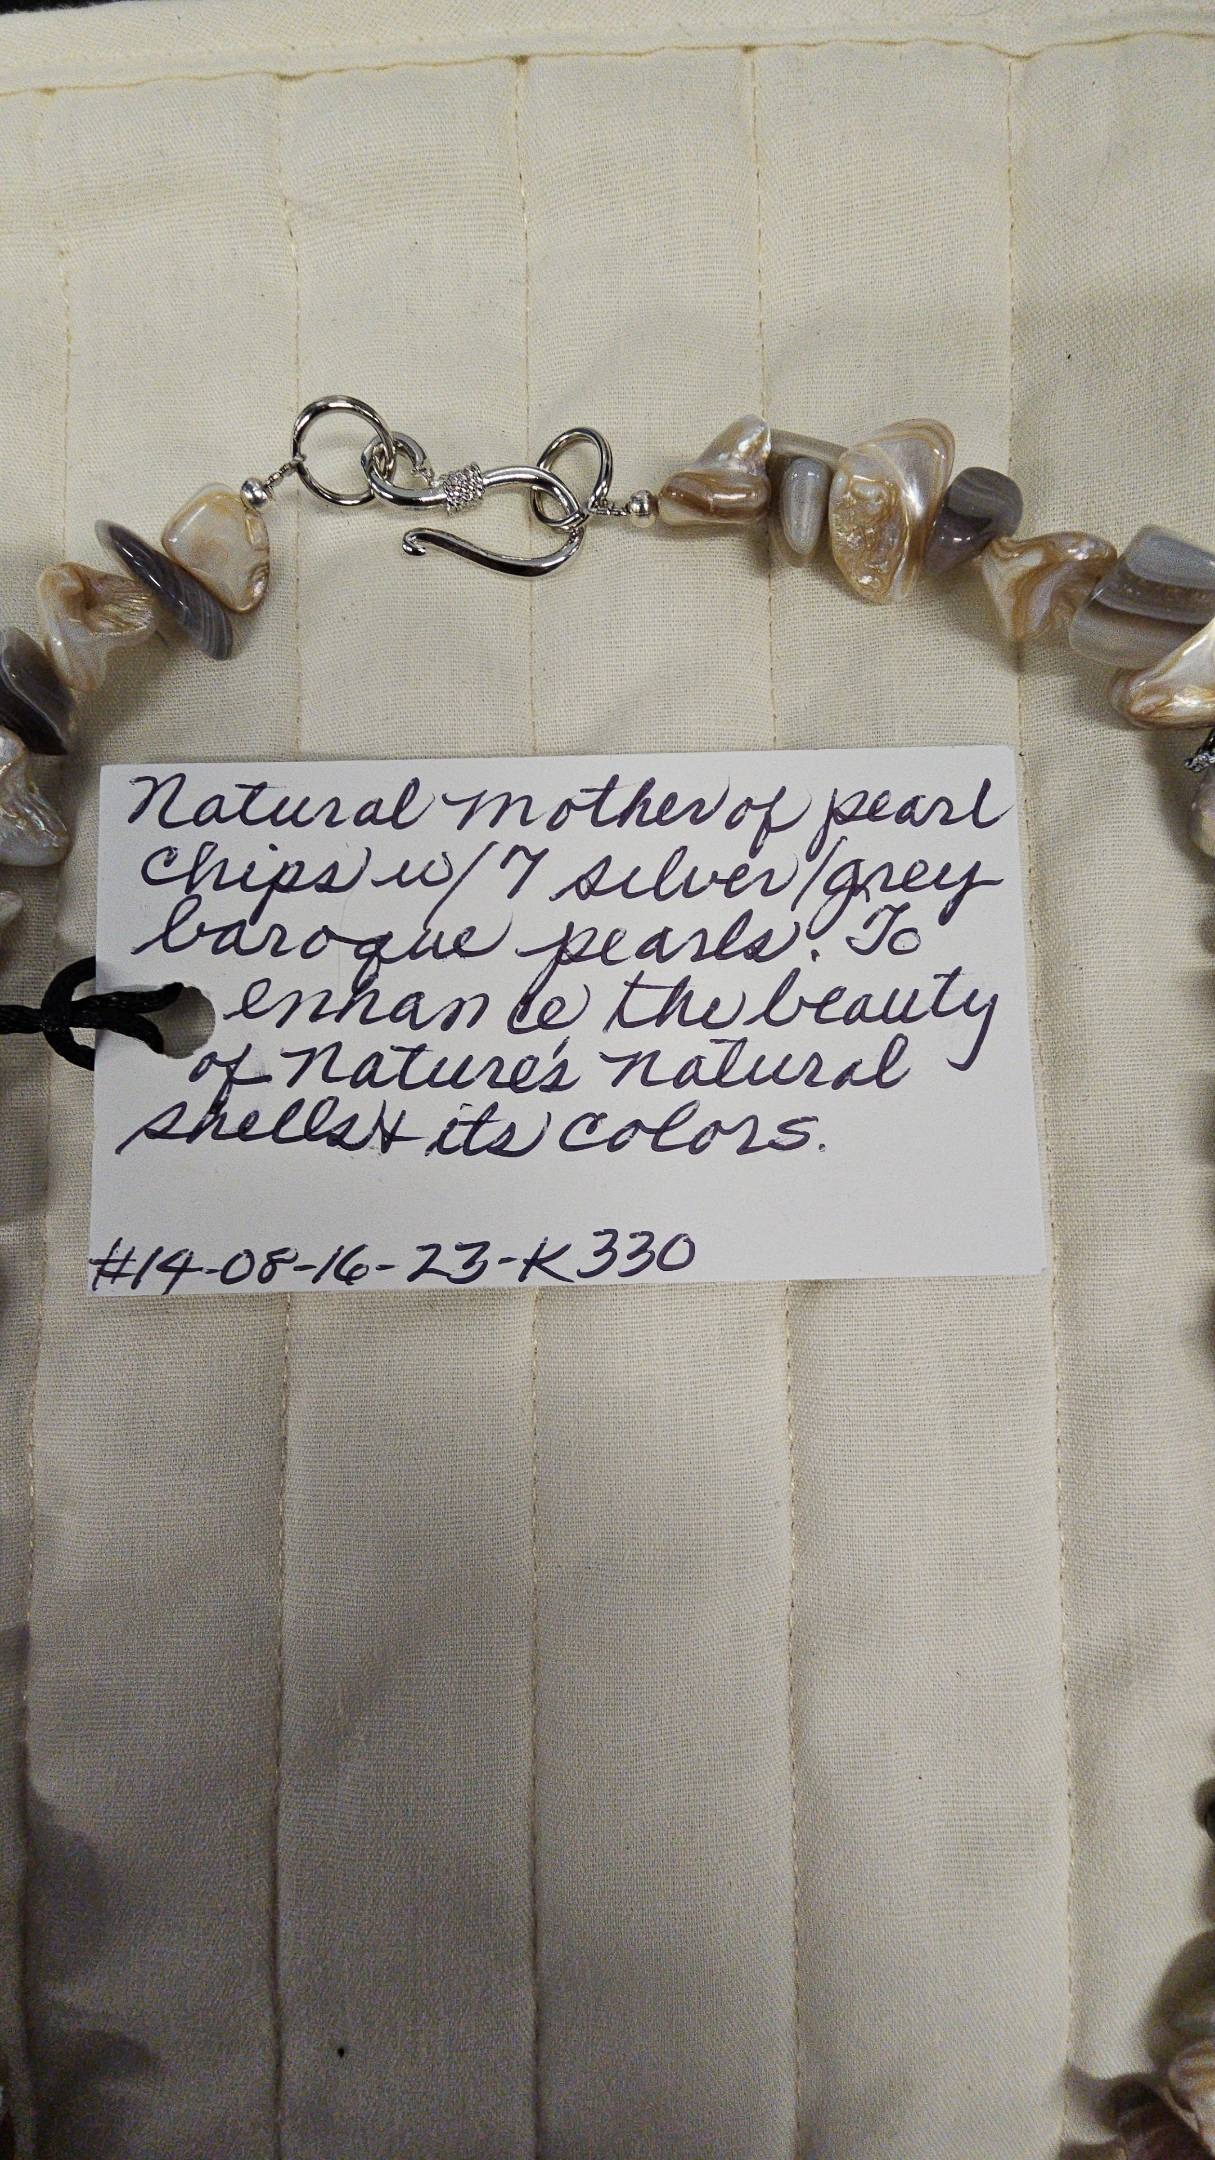 Natural mother of pearl
chips w/ 7 silver/grey
baroque pearls. To
enhance the beauty
of Nature's natural
shells & its colors.
#14-08-16-23-K330